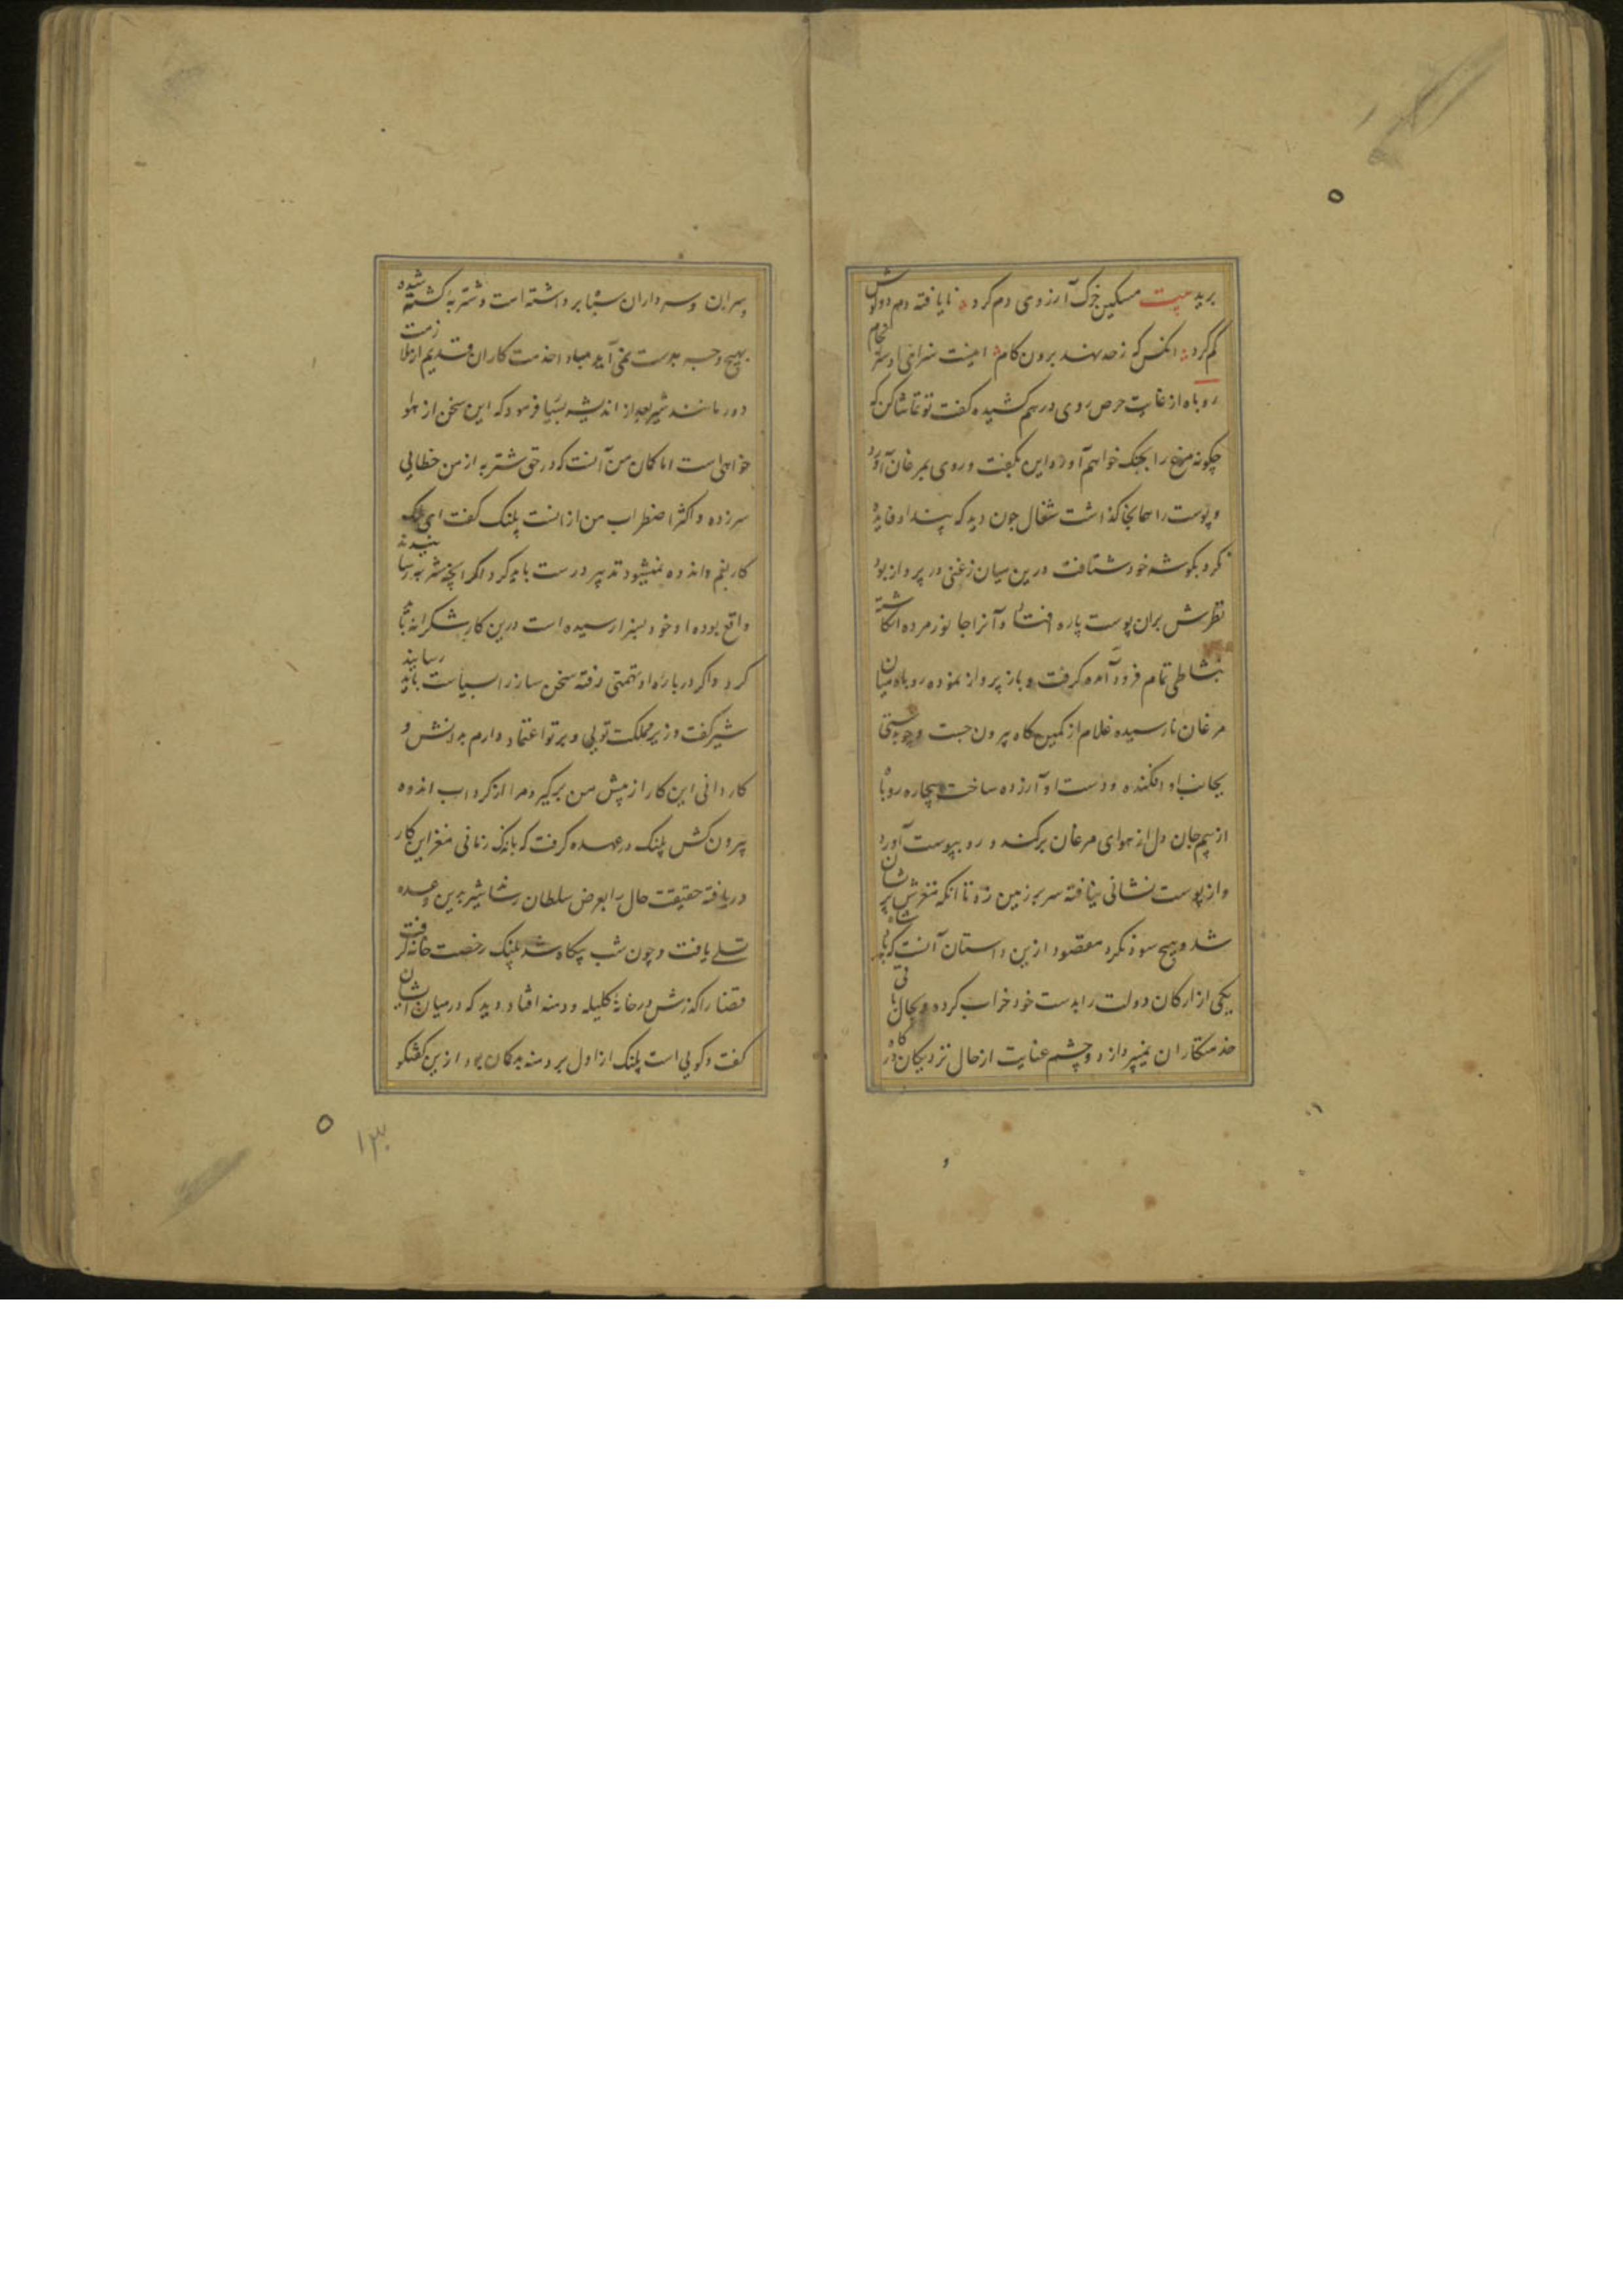 برید بیت مسکین خرک آرزوی دم کرد نایافته دم دو گوش
گم کرد انکس که زحد نهد برون کام اینست سزای او سرانجام
روباه از غایت حرص روی درهم کشیده گفت تو تماشا کن که
چکونه مرغ را بچنک خواهم آورد این بگفت و روی بمرغان آورد
و پوست را همانجا گذاشت شغال چون دید که پند او فایده
نکرد بگوشه خود شتافت درین میان زغنی در پرواز بود
نظرش بران پوست پاره افتاد و آنرا جانور مرده انکاشته
بنشاطی تمام فرود آمده گرفت و باز پرواز نموده روباه میان
مرغان نارسیده غلام از کمین گاه بیرون جست و چوبدستی
بجانب او افکنده و دست او آزرده ساخت بیچاره روباه
از بیم جان دل از هوای مرغان برکند و رو بپوست آورد
و از پوست نشانی نیافته سر بر زمین زد تا انکه مغزش پریشان
شد و هیچ سود نکرد مقصود ازین داستان آنست که پادشاه
یکی از ارکان دولت را بدست خود خراب کرده و بحال باقی
خدمتکاران نمیپردازد و چشم عنایت از حال نزدیکان درگاه
و سران و سرداران سپاه برداشته است و شتربه کشته شده
بهیچ وجه بدست نمی آید مباد اخدمت کاران قدیم از ملازمت
دور مانند شیر بعد از اندیشه بسیار فرمود که این سخن از هوا
خواهی است اما کمان من آنست که در حق شتربه از من خطایی
سرزده و اکثر اضطراب من از انست پلنک گفت ای ملک
کار بغم و اندوه نمیشود تدبیر درست باید کرد اگر آنچه شتربه رسانیدند
واقع بوده او خود بسزا رسیده است درین کار شکرانه بجا
کرد و اگر درباره او تهمتی رفته سخن ساز را بسیاست باید رسانید
شیر گفت وزیر مملکت تویی و بر تو اعتماد دارم بدانش و
کاردانی این کار از پیش من برگیر و مرا از گرداب اندوه
بیرون کش پلنک در عهده گرفت که باندک زمانی مغز این کار
دریافته حقیقت حال را بعرض سلطان رساند شیر بدین وعده
تسلی یافت و چون شب بیگاه شد پلنک رخصت خانه گرفت
قضا را گذرش در خانه کلیله و دمنه افتاد دید که در میان ایشان
گفت و گویی است پلنک از اول بر دمنه بدگمان بود ازین گفتگو
۱۳۰